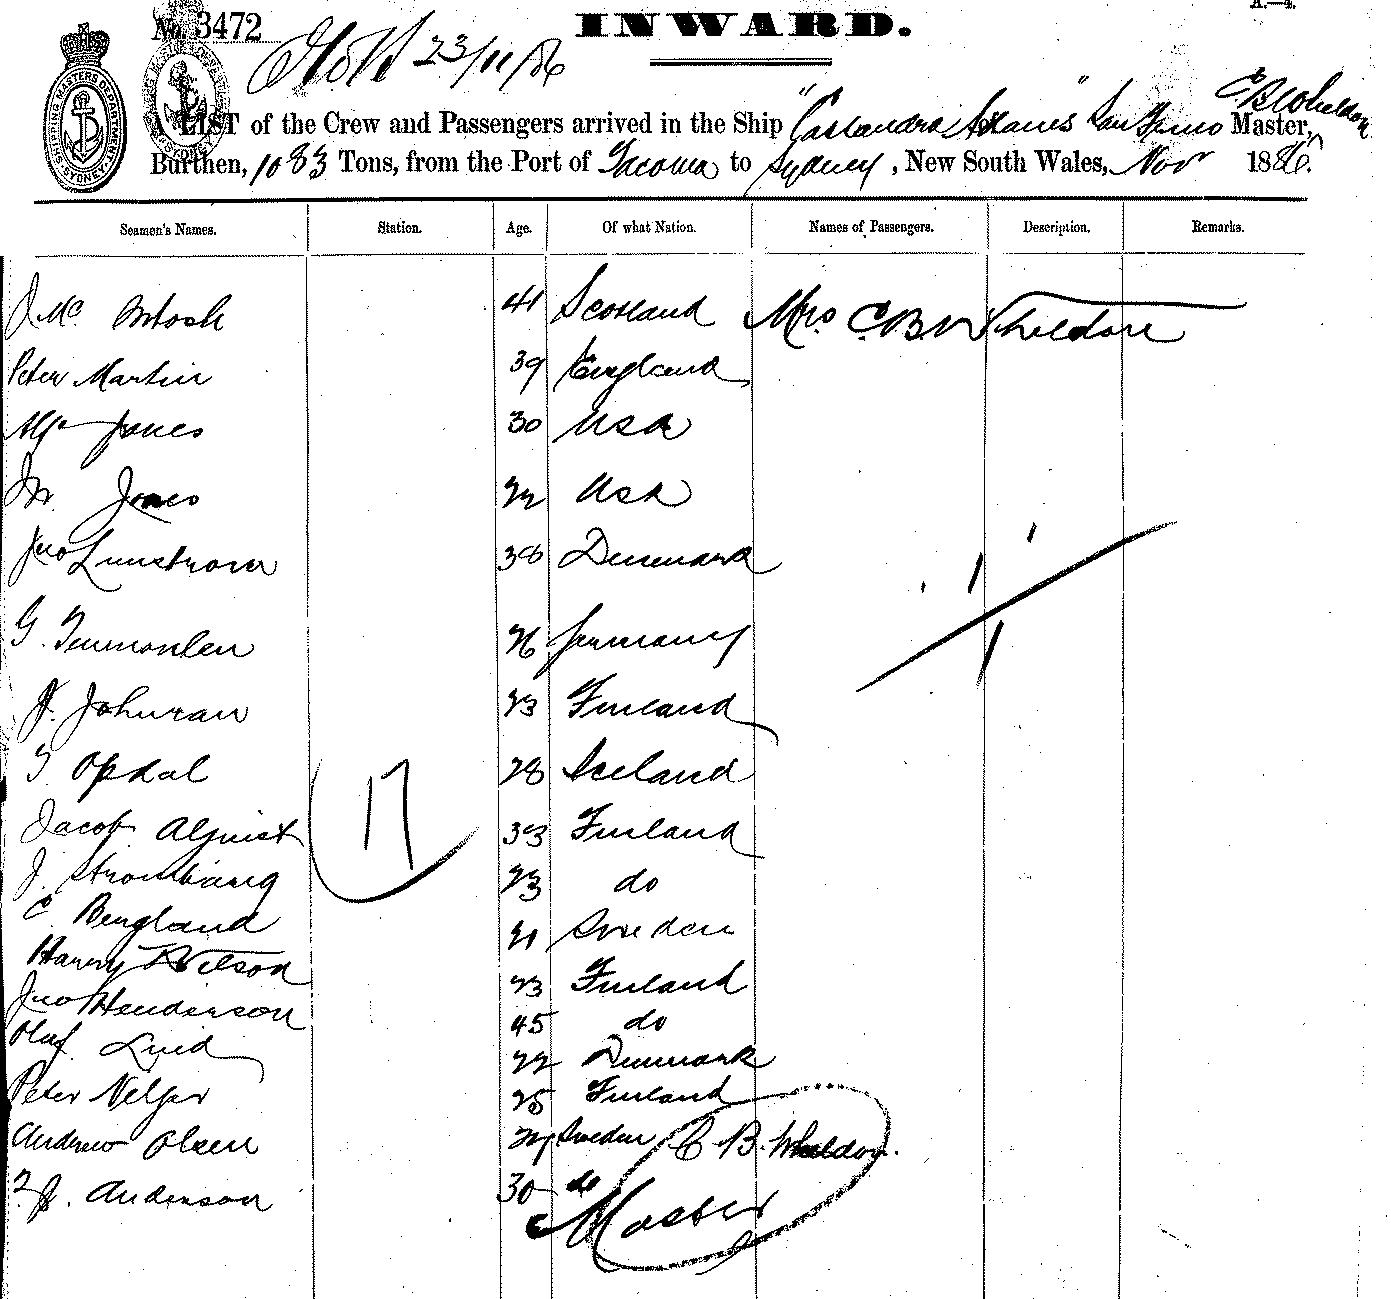 A.—4.
No. 3472
INWARD.
23/11/86
A LIST of the Crew and Passengers arrived in the Ship "Cassandra Adams" San Fr C B Wheldon Master,
Burthen, 1083 Tons, from the Port of Tacoma to Sydney, New South Wales, Nov 1886.
SHIPPING MASTERS DEPARTMENT SYDNEY
Seamen's Names. Station. Age. Of what Nation. Names of Passengers. Description. Remarks.
J. Mc Intosh 41 Scotland Mrs C. B. Wheldon
Peter Martin 39 England
Jones 30 USA
Jones 22 USA
Jno Lunstrom 38 Denmark
G. 26 Germany
J. Johnran 23 Finland
T Opdal 28 Iceland
17
Jacob Alquist 33 Finland
J. Strombarg 23 do
C Bengland 21 Sweden
Harry Nelson 23 Finland
Jno Henderson 45 do
Olaf Lind 22 Denmark
Peter 25 Finland
Andrew Olsen 24 Sweden C B. Wheldon.
J. Anderson 30 do
Master